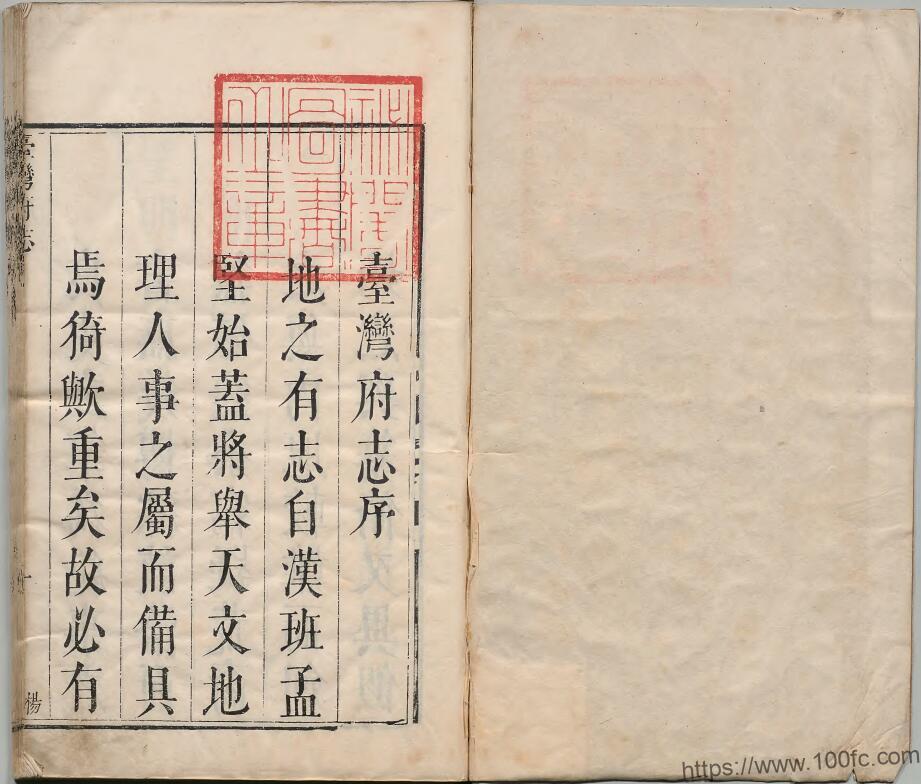 祕閣
圖書
之章
臺灣府志序
地之有志自漢班孟
堅始蓋將舉天文地
理人事之屬而備具
焉猗歟重矣故必有
臺灣府志
一
楊
https://www.100fc.com